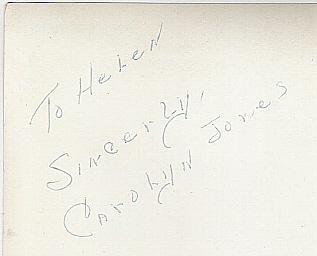 To Helen
Sincerely,
Carolyn Jones